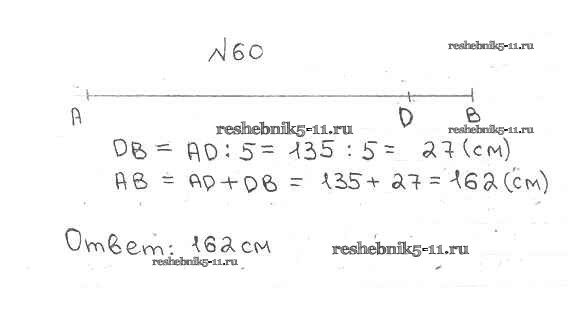 №60
reshebnik5-11.ru
A D B
reshebnik5-11.ru reshebnik5-11.ru
DB = AD : 5 = 135 : 5 = 27 (см)
AB = AD + DB = 135 + 27 = 162 (см)
Ответ: 162 см
reshebnik5-11.ru reshebnik5-11.ru